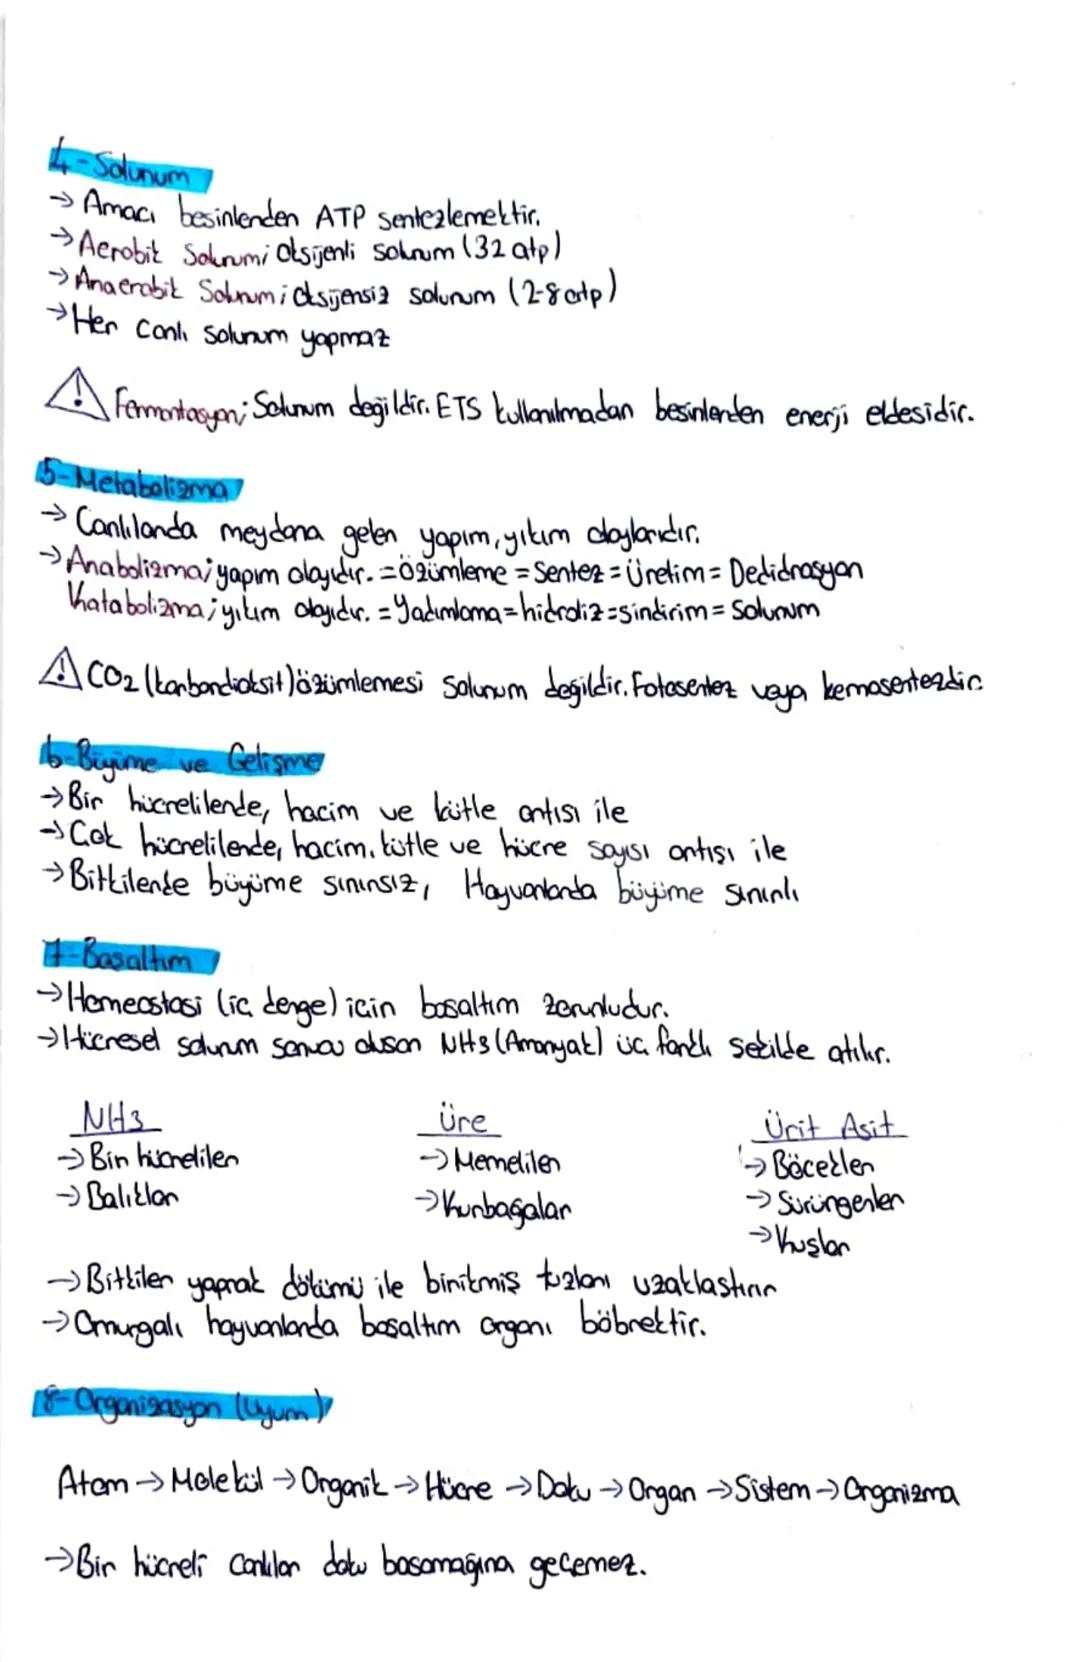 4-Solunum
→ Amacı besinlerden ATP sentezlemektir.
→ Aerobik Solunum; Oksijenli solunum (32 atp)
→ Anaerobik Solunum; Oksijensiz solunum (2-8 atp)
→ Her Canlı solunum yapmaz
⚠ Fermantasyon; Solunum değildir. ETS kullanılmadan besinlerden enerji eldesidir.
5-Metabolizma
→ Canlılarda meydana gelen yapım, yıkım olaylarıdır.
→ Anabolizma; yapım olayıdır. = Özümleme = Sentez = Üretim = Dedidrasyon
Katabolizma; yıkım olayıdır. = Yadımlama = hidroliz = sindirim = Solunum
⚠ CO2 (karbondioksit) özümlemesi Solunum değildir. Fotosentez veya kemosentezdir.
6-Büyüme ve Gelişme
→ Bir hücrelilerde, hacim ve kütle artısı ile
→ Çok hücrelilerde, hacim, kütle ve hücre sayısı artışı ile
→ Bitkilerde büyüme sınırsız, Hayvanlarda büyüme sınırlı
7-Boşaltım
→ Homeostasi (iç denge) için boşaltım zorunludur.
→ Hücresel solunum sonucu oluşan NH3 (Amonyak) üç farklı şekilde atılır.
NH3 Üre Ürik Asit
→ Bir hücreliler → Memeliler → Böcekler
→ Balıklar → Kurbağalar → Sürüngenler
→ Kuşlar
→ Bitkiler yaprak dökümü ile birikmiş tuzları uzaklaştırır
→ Omurgalı hayvanlarda boşaltım organı böbrektir.
8-Organizasyon (Uyum)
Atom → Molekül → Organik → Hücre → Doku → Organ → Sistem → Organizma
→ Bir hücreli canlılar doku basamağına geçemez.